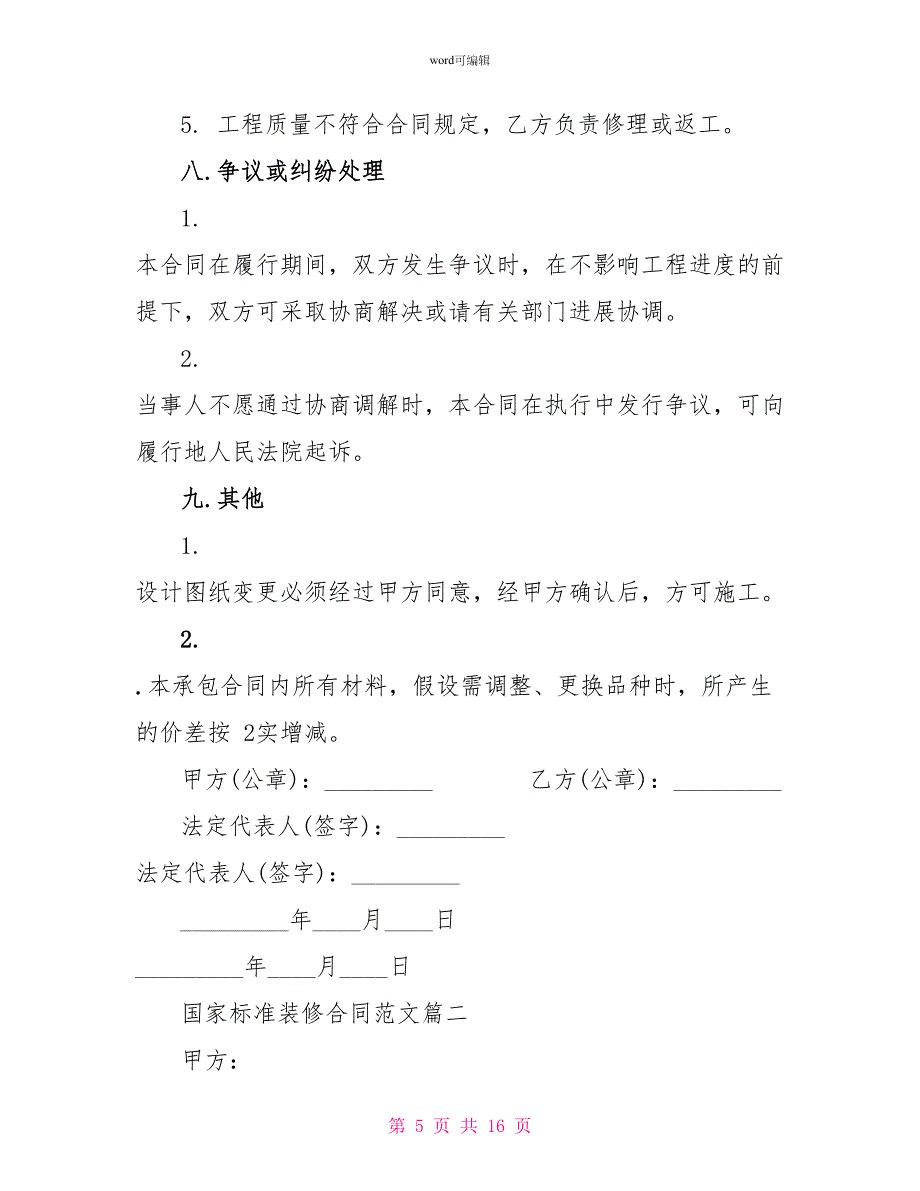 word可编辑
5. 工程质量不符合合同规定，乙方负责修理或返工。
八.争议或纠纷处理
1.
本合同在履行期间，双方发生争议时，在不影响工程进度的前
提下，双方可采取协商解决或请有关部门进展协调。
2.
当事人不愿通过协商调解时，本合同在执行中发行争议，可向
履行地人民法院起诉。
九.其他
1.
设计图纸变更必须经过甲方同意，经甲方确认后，方可施工。
2.
.本承包合同内所有材料，假设需调整、更换品种时，所产生
的价差按 2实增减。
甲方(公章)：_________ 乙方(公章)：_________
法定代表人(签字)：_________
法定代表人(签字)：_________
_________年____月____日
_________年____月____日
国家标准装修合同范文篇二
甲方：
第 5 页 共 16 页